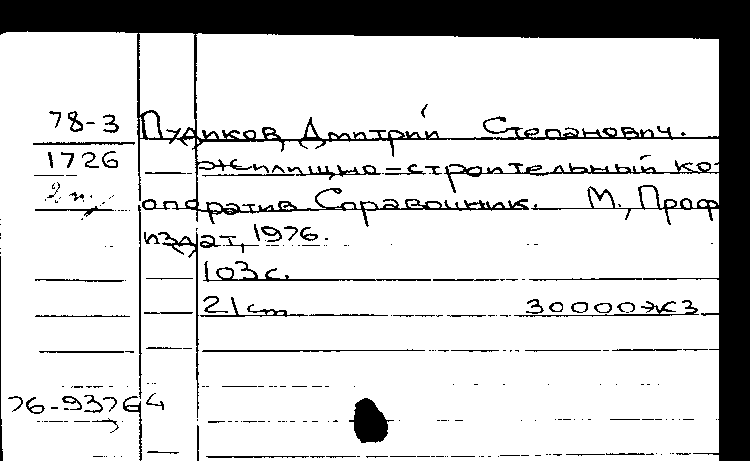 78-3 Пудиков, Дмитрий Степанович.
1726 Жилищно=строительный ко-
2 п. оператив. Справочник. М., Проф
издат, 1976.
103с.
21cm 30000экз.
76-93764